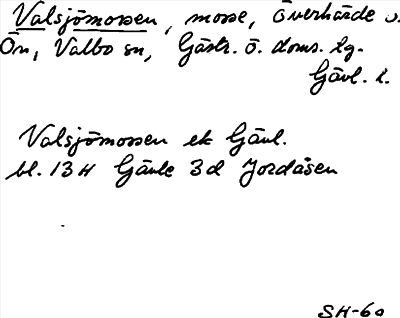 Valsjömossen, mosse, Överhärde o.
Ön, Valbo sn, Gästr. ö. doms. tg.
Gävl. l.
Valsjömossen ek Gävl.
bl. 13 H Gävle 3 d Jordåsen
SH-60